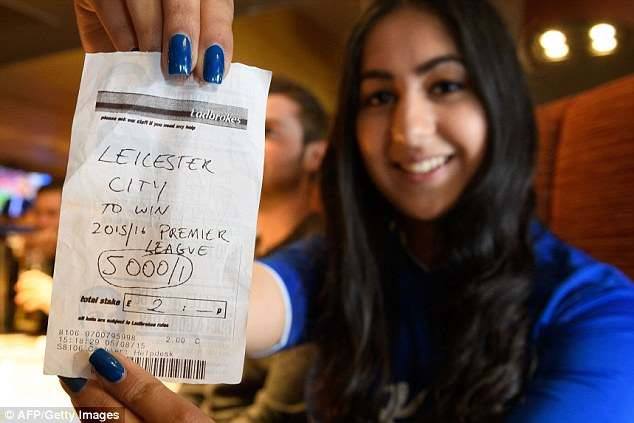 Ladbrokes
please ask our staff if you need any help
LEICESTER
CITY
TO WIN
2015/16 PREMIER
LEAGUE
5000/1
total stake £ 2 : — p
all bets are subject to Ladbrokes rules
8106 9700795998 2.00 C
15:18:29 05/08/15
Helpdesk
© AFP/Getty Images